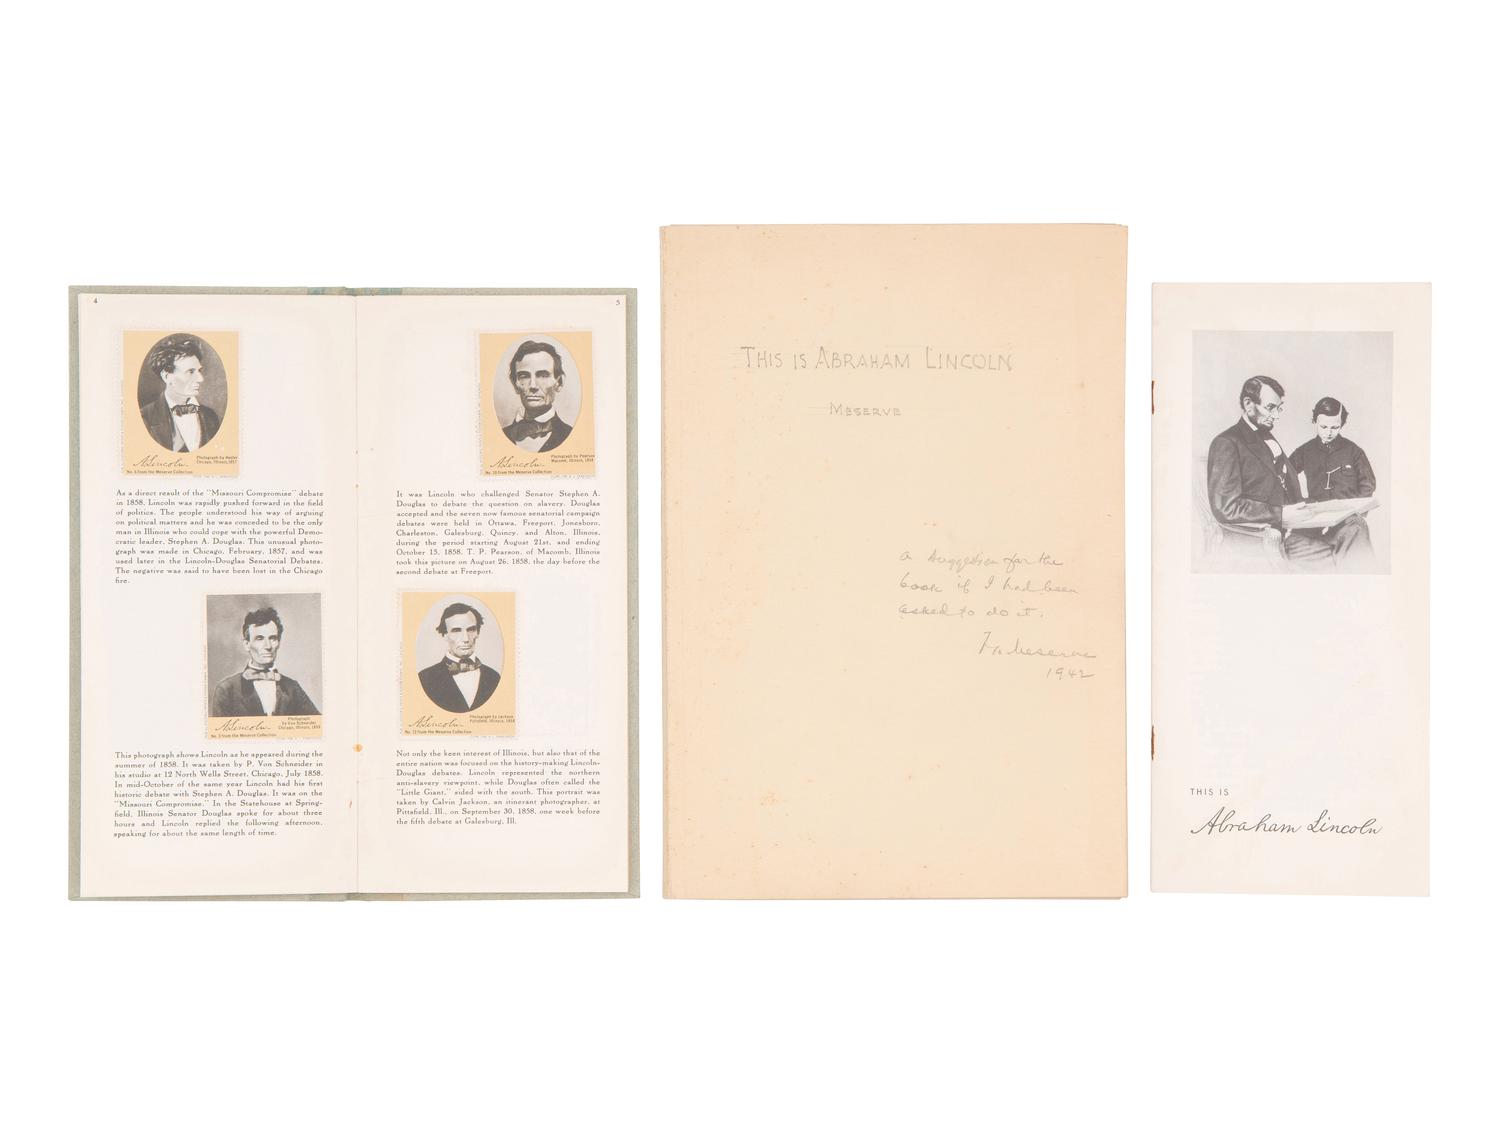 4
5
A. Lincoln
Photograph by Hesler
Chicago, Illinois, 1857
No. 6 from the Meserve Collection
As a direct result of the "Missouri Compromise" debate
in 1858, Lincoln was rapidly pushed forward in the field
of politics. The people understood his way of arguing
on political matters and he was conceded to be the only
man in Illinois who could cope with the powerful Demo-
cratic leader, Stephen A. Douglas. This unusual photo-
graph was made in Chicago, February, 1857, and was
used later in the Lincoln-Douglas Senatorial Debates.
The negative was said to have been lost in the Chicago
fire.
A. Lincoln
Photograph
by Von Schneider
Chicago, Illinois, 1858
No. 5 from the Meserve Collection
This photograph shows Lincoln as he appeared during the
summer of 1858. It was taken by P. Von Schneider in
his studio at 12 North Wells Street, Chicago, July 1858.
In mid-October of the same year Lincoln had his first
historic debate with Stephen A. Douglas. It was on the
"Missouri Compromise." In the Statehouse at Spring-
field, Illinois Senator Douglas spoke for about three
hours and Lincoln replied the following afternoon,
speaking for about the same length of time.
A. Lincoln
Photograph by Pearson
Macomb, Illinois, 1858
No. 10 from the Meserve Collection
It was Lincoln who challenged Senator Stephen A.
Douglas to debate the question on slavery. Douglas
accepted and the seven now famous senatorial campaign
debates were held in Ottawa, Freeport, Jonesboro,
Charleston, Galesburg, Quincy, and Alton, Illinois,
during the period starting August 21st, and ending
October 15, 1858. T. P. Pearson, of Macomb, Illinois
took this picture on August 26, 1858, the day before the
second debate at Freeport.
A. Lincoln
Photograph by Jackson
Pittsfield, Illinois, 1858
No. 12 from the Meserve Collection
Not only the keen interest of Illinois, but also that of the
entire nation was focused on the history-making Lincoln-
Douglas debates. Lincoln represented the northern
anti-slavery viewpoint, while Douglas often called the
"Little Giant," sided with the south. This portrait was
taken by Calvin Jackson, an itinerant photographer, at
Pittsfield, Ill., on September 30, 1858, one week before
the fifth debate at Galesburg, Ill.
THIS IS ABRAHAM LINCOLN
MESERVE
A suggestion for the
book if I had been
asked to do it.
F H Meserve
1942
THIS IS
Abraham Lincoln